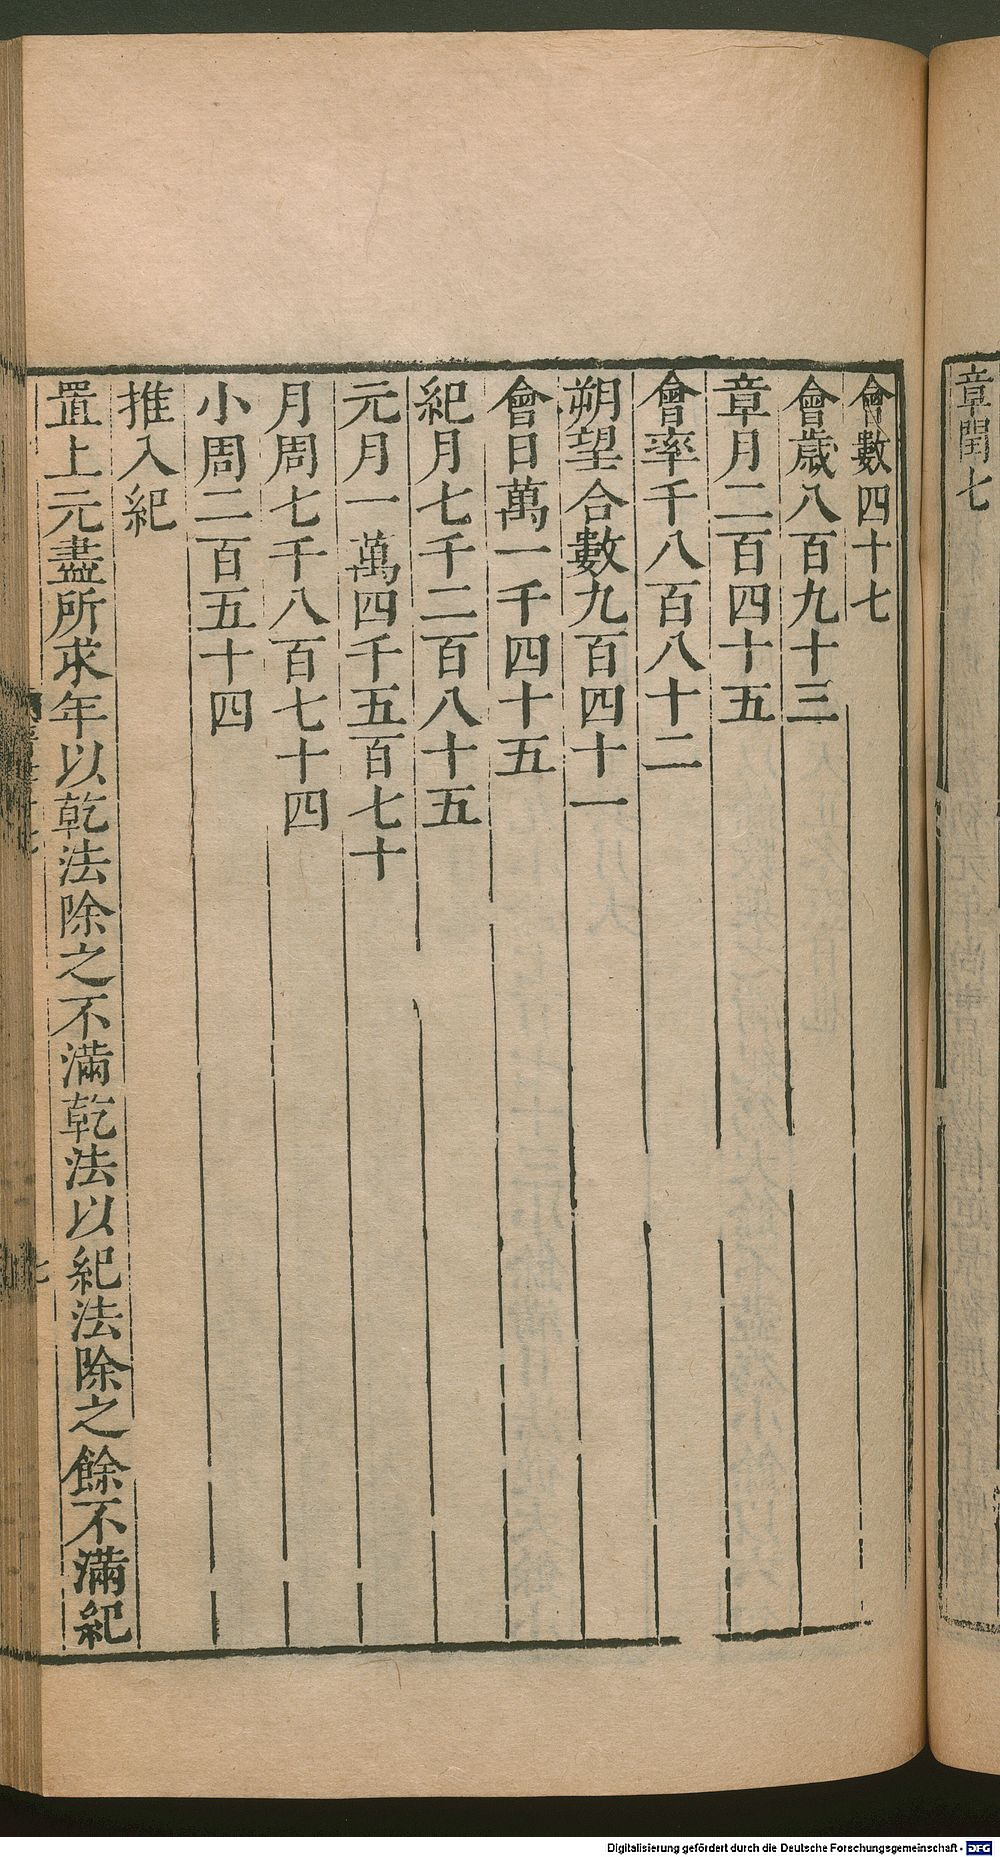 章閏七
會數四十七
會歲八百九十三
章月二百四十五
會率千八百八十二
朔望合數九百四十一
會日萬一千四十五
紀月七千二百八十五
元月一萬四千五百七十
月周七千八百七十四
小周二百五十四
推入紀
置上元盡所求年以乾法除之不滿乾法以紀法除之餘不滿紀
七
Digitalisierung gefördert durch die Deutsche Forschungsgemeinschaft - DFG